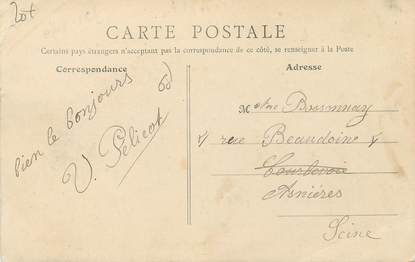 20f
CARTE POSTALE
Certains pays étrangers n'acceptant pas la correspondance de ce côté, se renseigner à la Poste
Correspondance
Adresse
bien le bonjours
V. Pélicot
M
rue Beaudoine
Courbevoie
Asnières
Seine